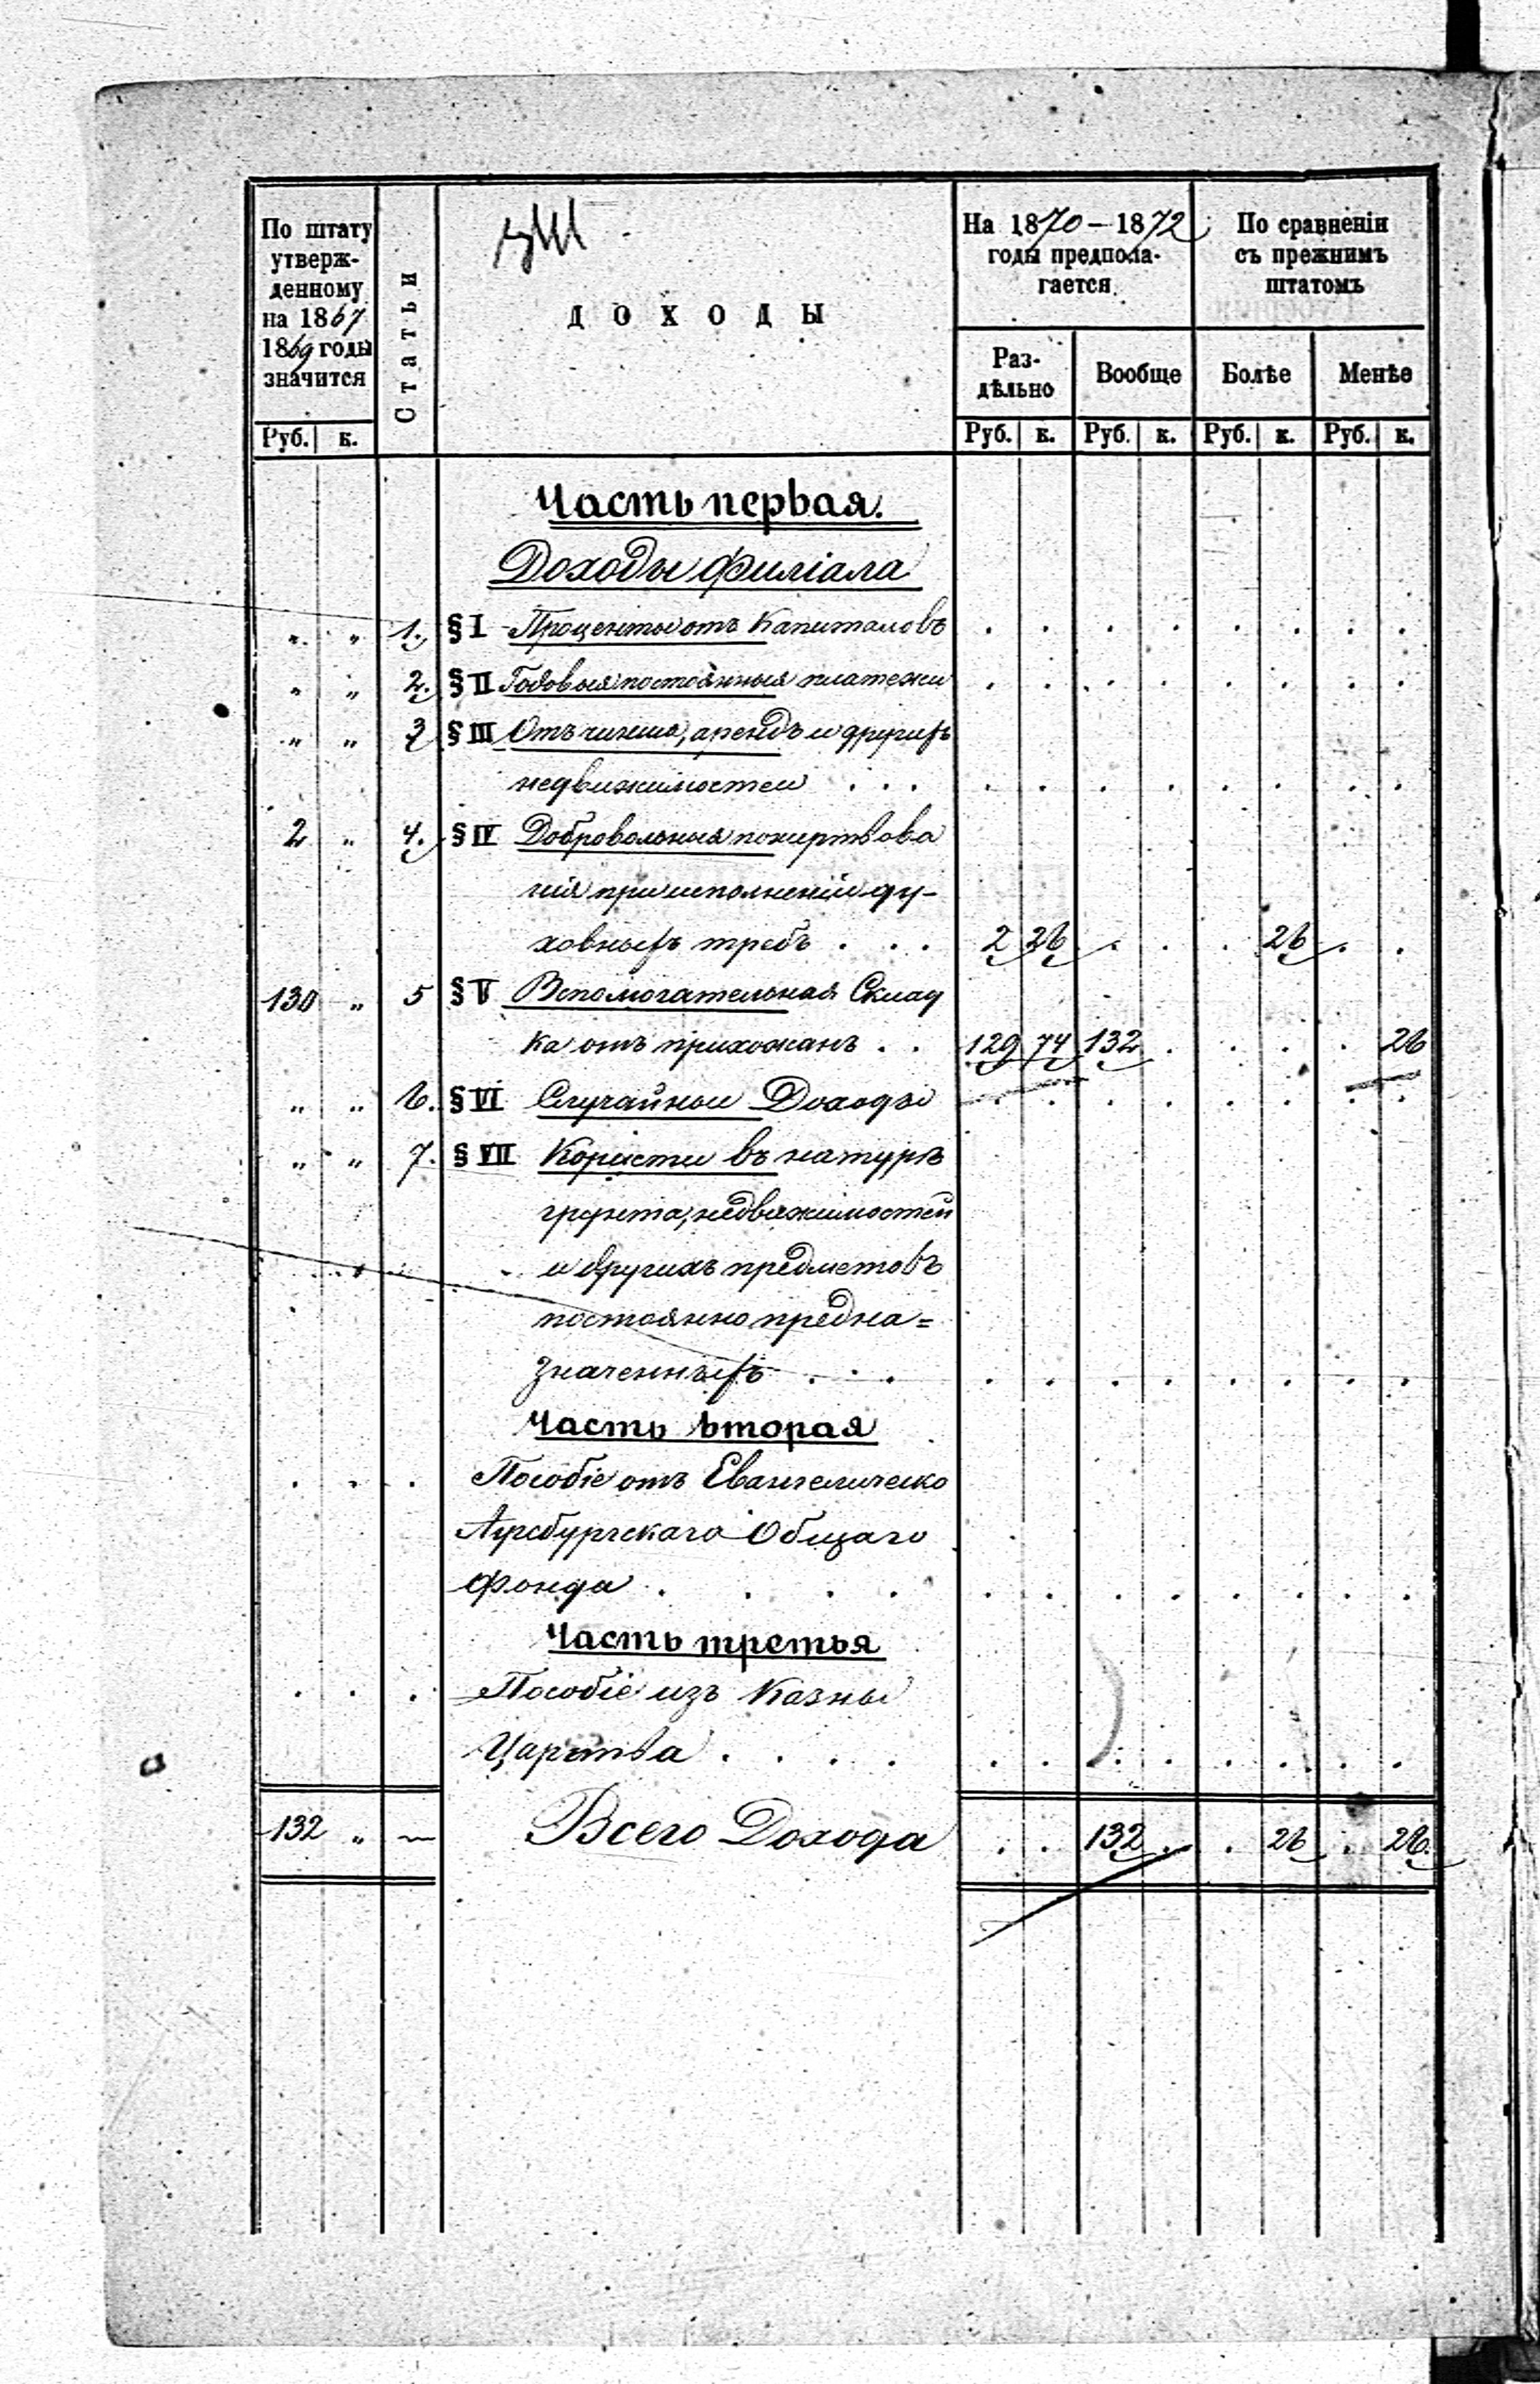 По штату утвержденному на 1867 1869 годы значится
Статьи
ДОХОДЫ
На 1870 – 1872 годы предполагается.
По сравненіи съ прежнимъ штатомъ
Раздѣльно
Вообще
Болѣе
Менѣе
Руб. к.
Руб. к. Руб. к. Руб. к. Руб. к.
Часть первая.
Доходы филіала
" " 1. § I Проценты отъ Капиталовъ . . . . . . . .
" " 2. § II Годовыя постоянныя платежи . . . . . . . .
" " 3 § III Отъ чинша, арендъ и другихъ
недвижимостей . . . . . . . . . . .
2 " 4. § IV Добровольныя пожертвова
нія при исполненіи ду-
ховныхъ требъ . . . 2 26 . . . 26 . .
130 " 5 § V Вспомогательная Склад
ка отъ прихожанъ . . 129 74 132 . . . . 26
" " 6. § VI Случайные Доходы . . . . . . . .
" " 7. § VII Корысти въ натурѣ
грунта, недвижимостей
и другихъ предметовъ
постоянно предна=
значенныхъ . . . . . . . . . . .
Часть вторая
. . . Пособіе отъ Евангелическо
Аугсбургскаго Общаго
Фонда . . . . . . . . . . . .
Часть третья
. . . Пособіе изъ Казны
Царства . . . . . . . . . . . .
132 " — Всего Дохода . . 132 . . 26 . 26.